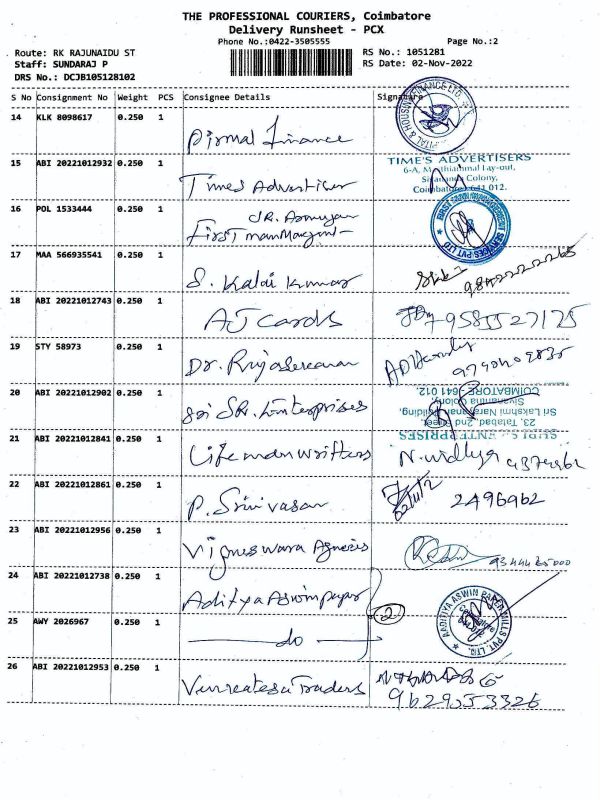 THE PROFESSIONAL COURIERS, Coimbatore
Delivery Runsheet - PCX
Phone No.:0422-3505555 Page No.:2
Route: RK RAJUNAIDU ST RS No.: 1051281
Staff: SUNDARAJ P RS Date: 02-Nov-2022
DRS No.: DCJB105128102
S No Consignment No Weight PCS Consignee Details Signature
14 KLK 8098617 0.250 1
Finance
15 ABI 20221012932 0.250 1
TIME'S ADVERTISERS
Coimbatore - 641 012.
Times Advertiser
16 POL 1533444 0.250 1
17 MAA 566935541 0.250 1
S. Kalai Kumar
18 ABI 20221012743 0.250 1
AJ Cards 9585527175
19 STY 58973 0.250 1
Dr.
20 ABI 20221012902 0.250 1
23, Tatabad, 2nd Street,
Sri Lakshmi Narayanan Building,
Sivanantha Colony,
COIMBATORE - 641 012.
Sri SR. Enterprises
21 ABI 20221012841 0.250 1
ENTERPRISES
Life man writters N. Vidhya
22 ABI 20221012861 0.250 1
P. Srinivasan 2496962
23 ABI 20221012956 0.250 1
Vigneswara Agencies
24 ABI 20221012738 0.250 1
Aditya Aswin paper
25 AWY 2026967 0.250 1
do 2
AADITYA ASWIN PAPER MILLS PVT. LTD.
26 ABI 20221012953 0.250 1
Venkatesa Traders
9629053326